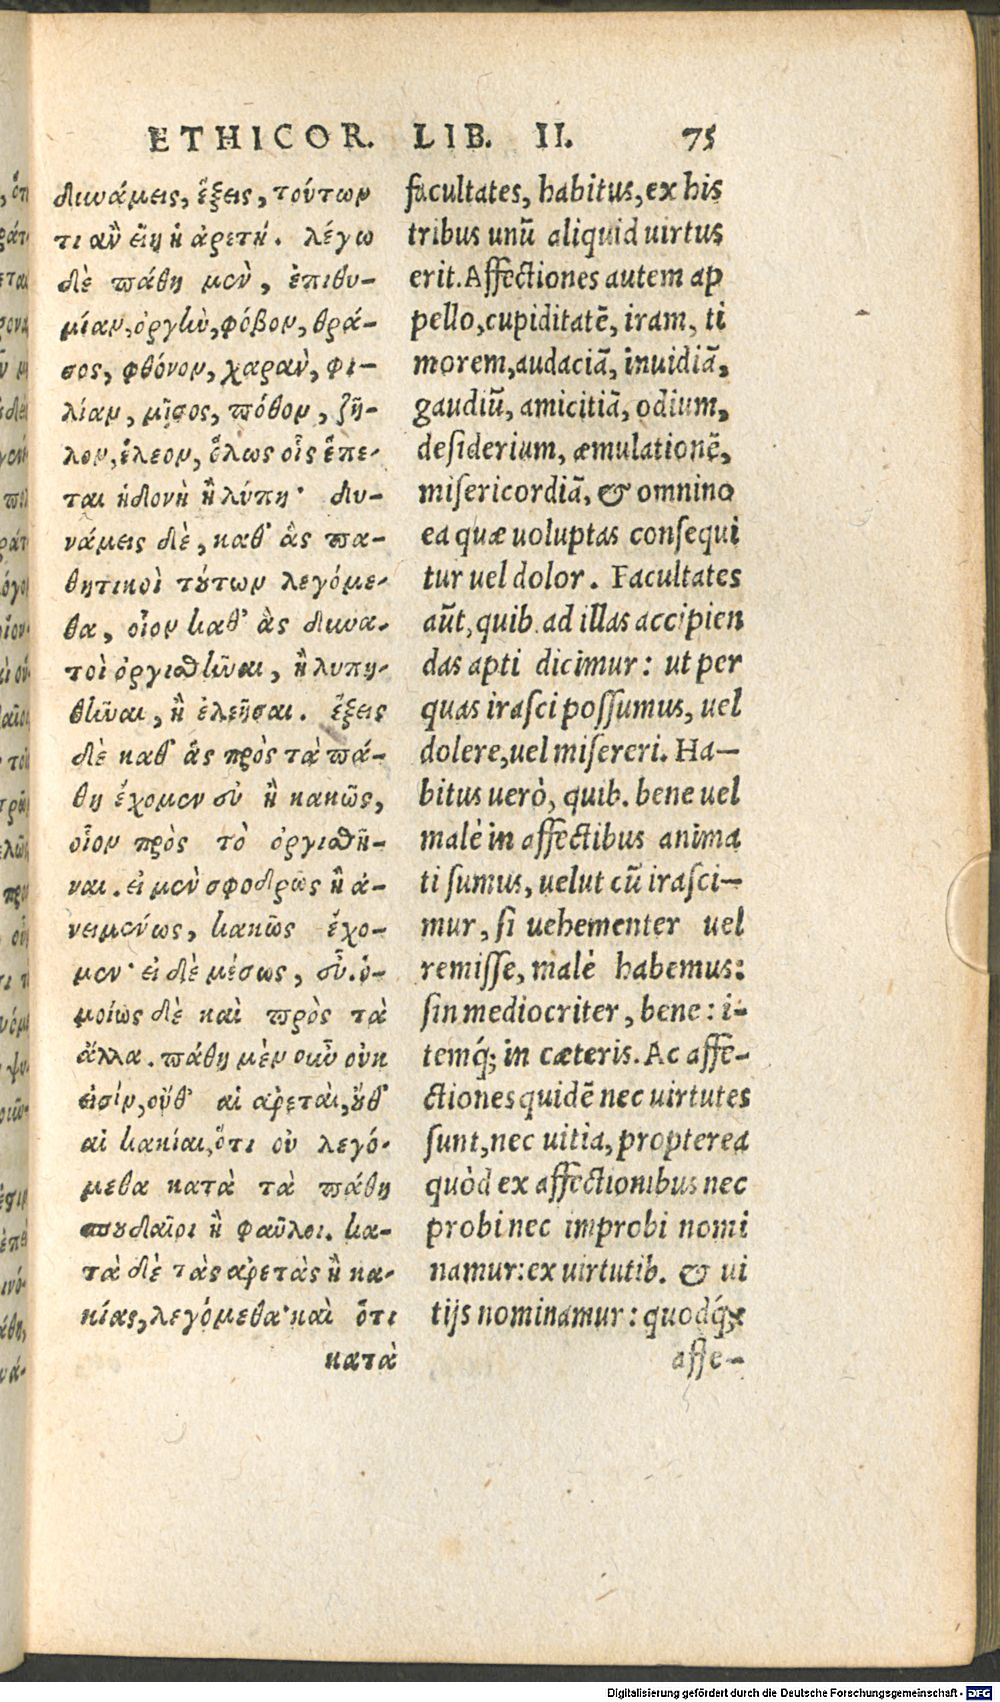 ETHICOR. LIB. II. 75
δυνάμεις, ἕξεις, τούτων
τι ἂν εἴη ἡ ἀρετή. λέγω
δὲ πάθη μὲν, ἐπιθυ-
μίαν, ὀργὴν, φόβον, θρά-
σος, φθόνον, χαρὰν, φι-
λίαν, μῖσος, πόθον, ζῆ-
λον, ἔλεον, ὅλως οἷς ἕπε-
ται ἡδονὴ ἢ λύπη· δυ-
νάμεις δὲ, καθ' ἃς πα-
θητικοὶ τούτων λεγόμε-
θα, οἷον καθ' ἃς δυνα-
τοὶ ὀργισθῆναι, ἢ λυπη-
θῆναι, ἢ ἐλεῆσαι. ἕξεις
δὲ καθ' ἃς πρὸς τὰ πά-
θη ἔχομεν εὖ ἢ κακῶς,
οἷον πρὸς τὸ ὀργισθῆ-
ναι. εἰ μὲν σφοδρῶς ἢ ἀ-
νειμένως, κακῶς ἔχο-
μεν· εἰ δὲ μέσως, εὖ. ὁ-
μοίως δὲ καὶ πρὸς τὰ
ἄλλα. πάθη μὲν οὖν οὐκ
εἰσὶν, οὔθ' αἱ ἀρεταὶ, οὔθ'
αἱ κακίαι, ὅτι οὐ λεγό-
μεθα κατὰ τὰ πάθη
σπουδαῖοι ἢ φαῦλοι. κα-
τὰ δὲ τὰς ἀρετὰς ἢ κα-
κίας, λεγόμεθα· καὶ ὅτι
κατὰ
facultates, habitus, ex his
tribus unũ aliquid uirtus
erit. Affectiones autem ap
pello, cupiditatẽ, iram, ti
morem, audaciã, inuidiã,
gaudiũ, amicitiã, odium,
desiderium, æmulationẽ,
misericordiã, & omnino
ea quæ uoluptas consequi
tur uel dolor. Facultates
aũt, quib. ad illas accipien
das apti dicimur: ut per
quas irasci possumus, uel
dolere, uel misereri. Ha-
bitus uerò, quib. bene uel
malè in affectibus anima
ti sumus, uelut cũ irasci-
mur, si uehementer uel
remisse, malè habemus:
sin mediocriter, bene: i-
temq́; in cæteris. Ac affe-
ctiones quidẽ nec uirtutes
sunt, nec uitia, propterea
quòd ex affectionibus nec
probi nec improbi nomi
namur: ex uirtutib. & ui
tijs nominamur: quodq́; ex
affe-
Digitalisierung gefördert durch die Deutsche Forschungsgemeinschaft - DFG